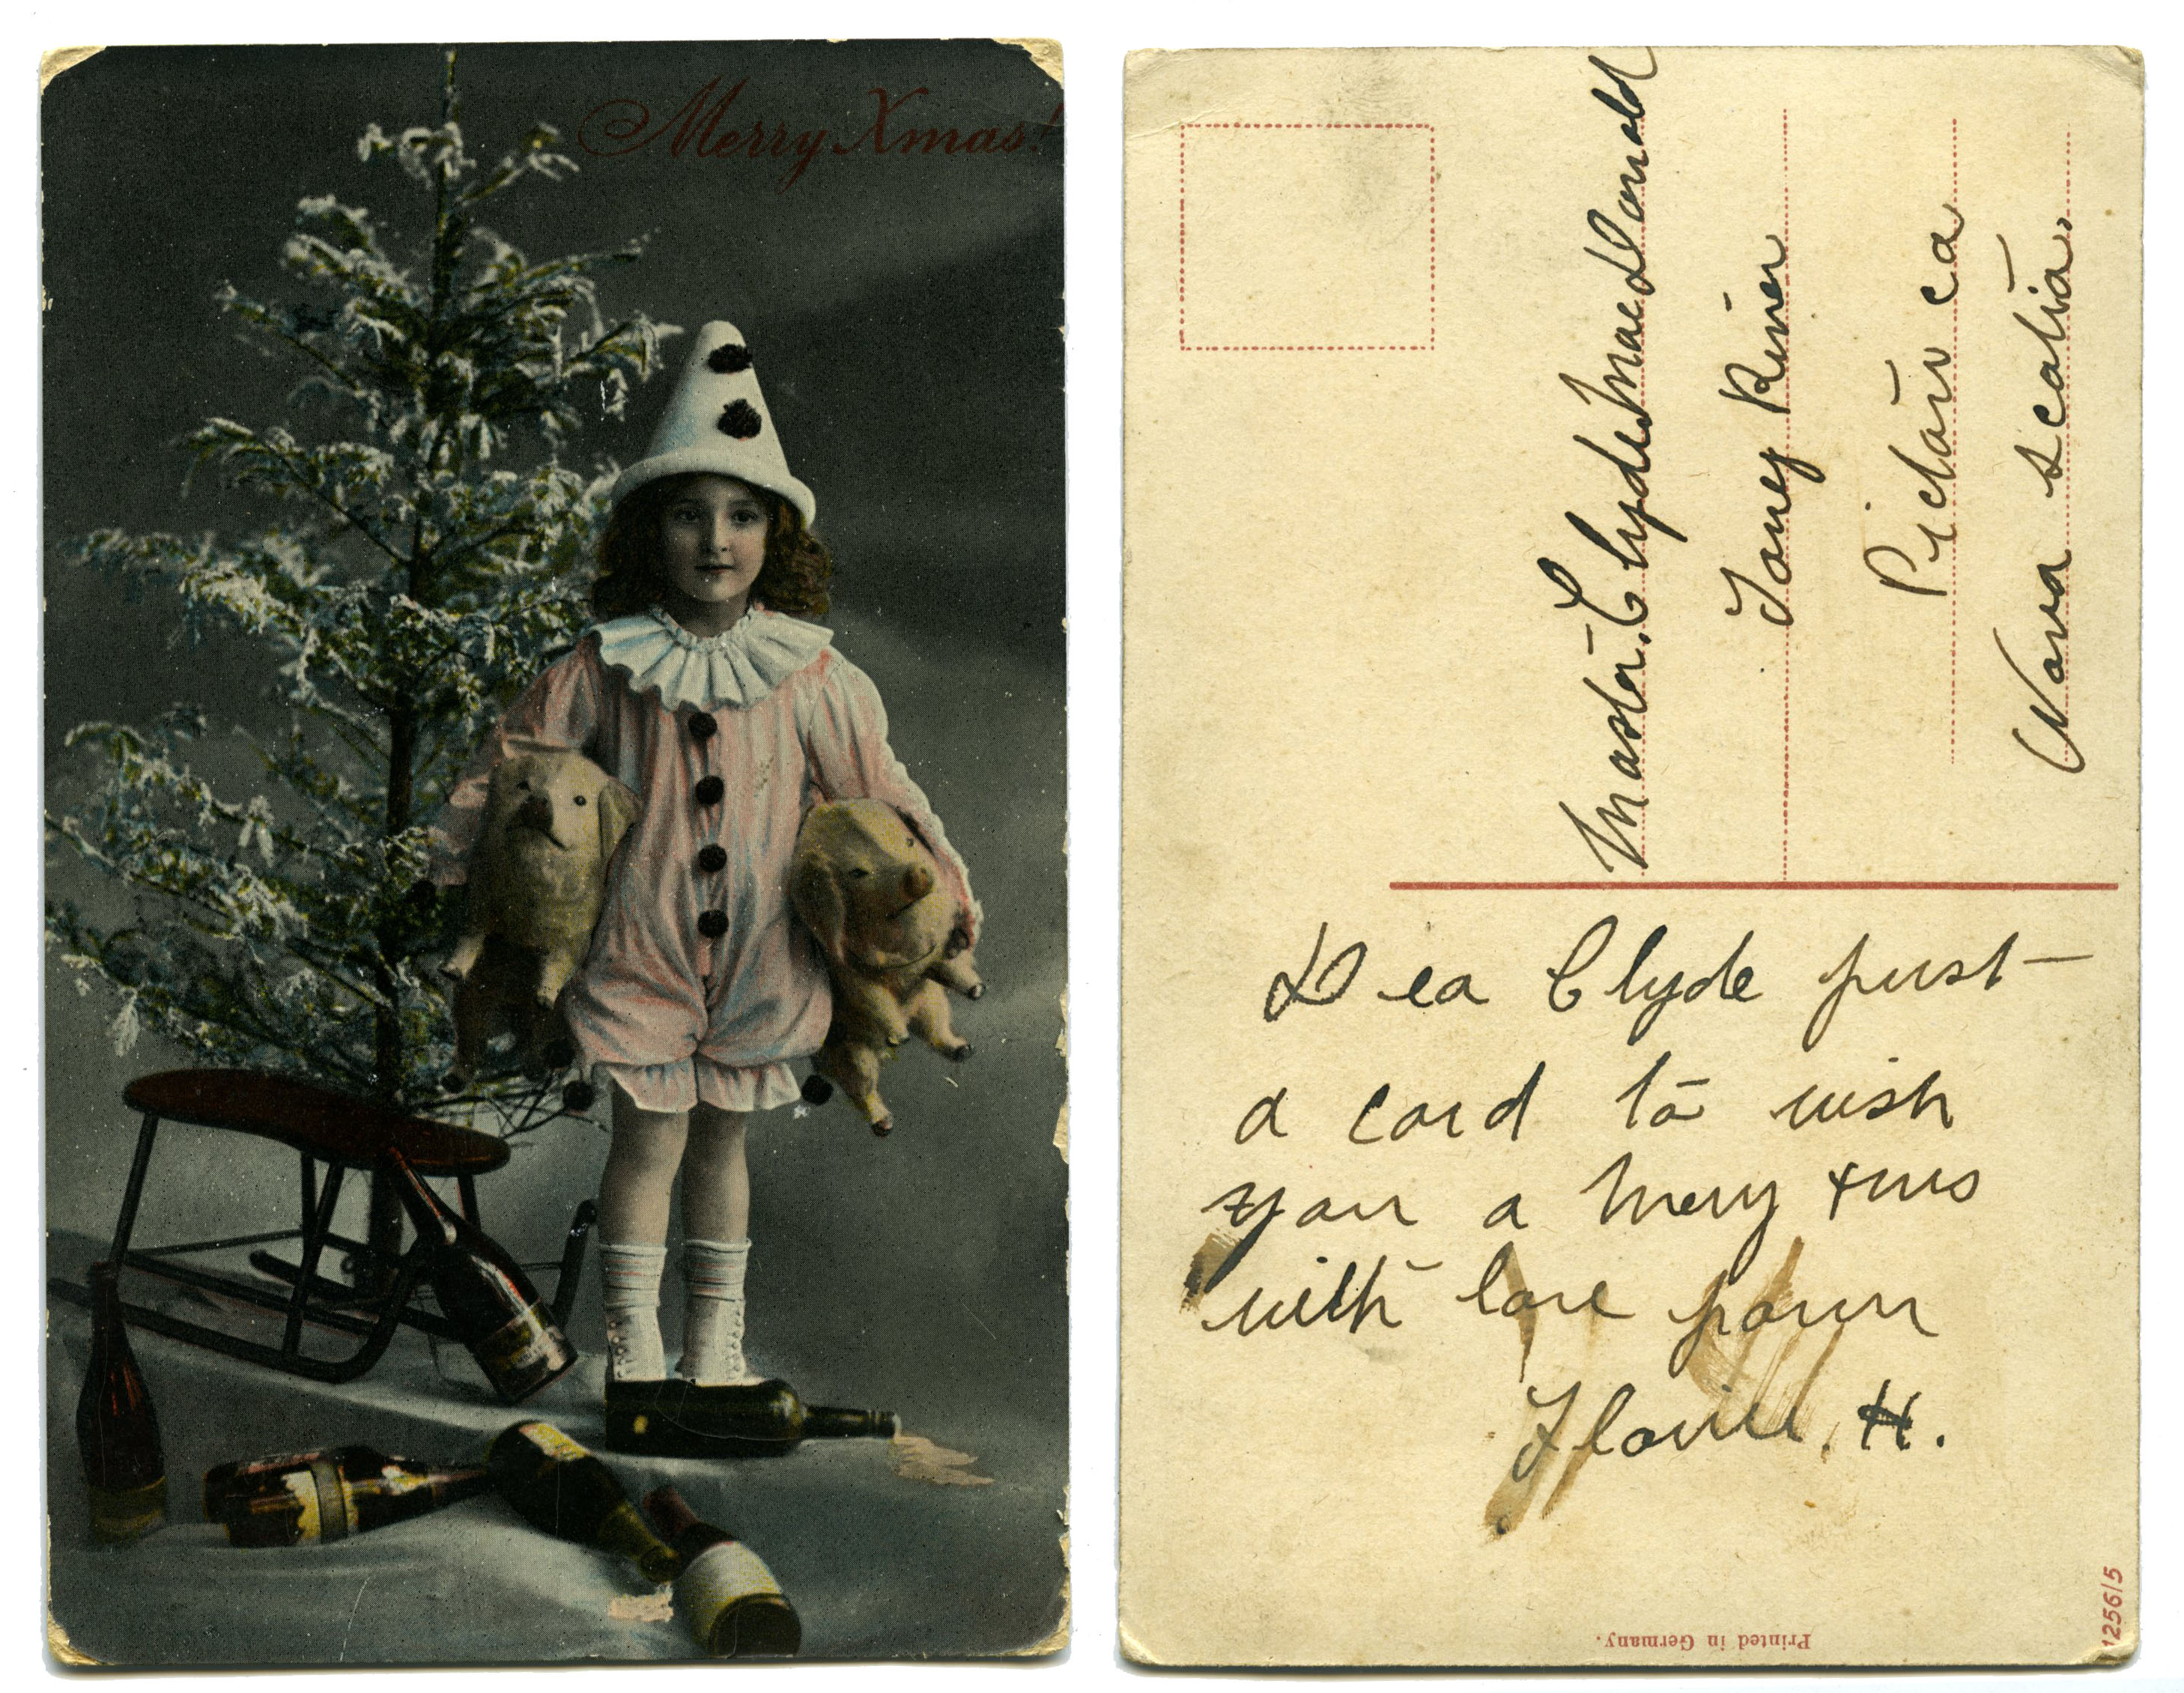 Merry Xmas!
Master. Clyde MacDonald
Toney River
Pictou co
Nova scotia.
Dea Clyde just
a card to wish
you a mery xms
with love from
Flovie. H.
Printed in Germany.
1256/5